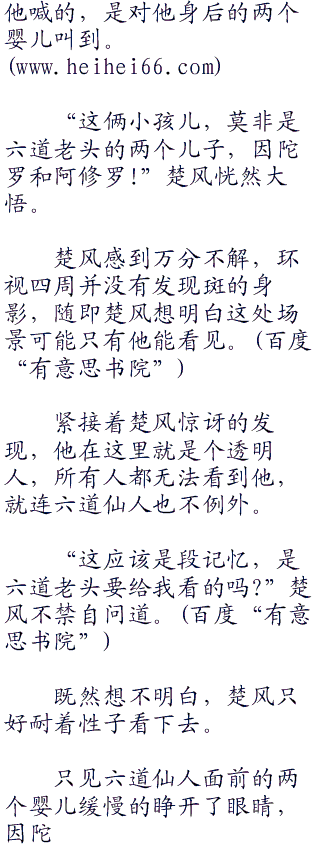 他喊的，是对他身后的两个
婴儿叫到。
(www.heihei66.com)
“这俩小孩儿，莫非是
六道老头的两个儿子，因陀
罗和阿修罗!”楚风恍然大
悟。
楚风感到万分不解，环
视四周并没有发现斑的身
影，随即楚风想明白这处场
景可能只有他能看见。(百度
“有意思书院”)
紧接着楚风惊讶的发
现，他在这里就是个透明
人，所有人都无法看到他，
就连六道仙人也不例外。
“这应该是段记忆，是
六道老头要给我看的吗?”楚
风不禁自问道。(百度“有意
思书院”)
既然想不明白，楚风只
好耐着性子看下去。
只见六道仙人面前的两
个婴儿缓慢的睁开了眼睛，
因陀